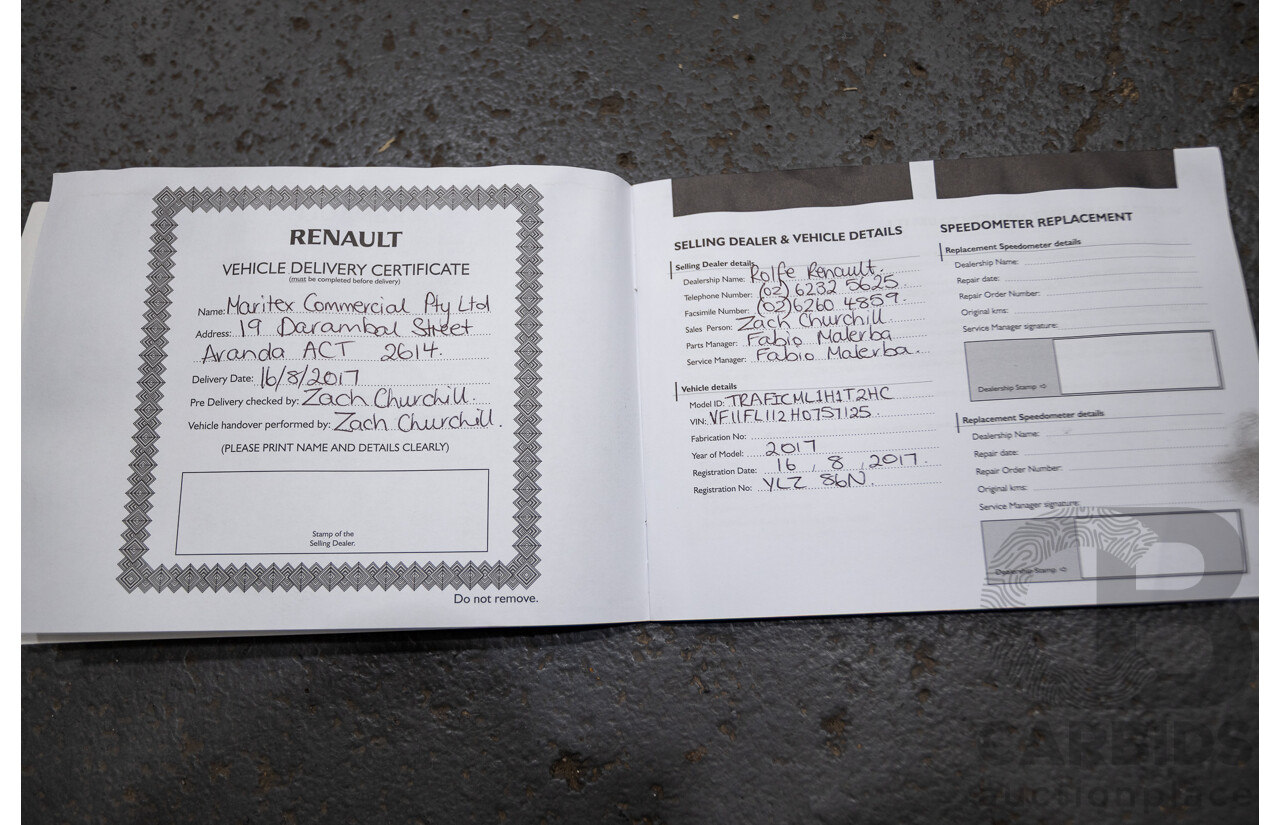 RENAULT
VEHICLE DELIVERY CERTIFICATE
(must be completed before delivery)
Name: Maritex Commercial Pty Ltd
Address: 19 Darambal Street
Aranda ACT 2614.
Delivery Date: 16/8/2017
Pre Delivery checked by: Zach Churchill.
Vehicle handover performed by: Zach Churchill.
(PLEASE PRINT NAME AND DETAILS CLEARLY)
Stamp of the
Selling Dealer.
Do not remove.
SELLING DEALER & VEHICLE DETAILS
Selling Dealer details
Dealership Name: Rolfe Renault.
Telephone Number: (02) 6232 5625
Facsimile Number: (02) 6260 4859.
Sales Person: Zach Churchill
Parts Manager: Fabio Malerba
Service Manager: Fabio Malerba.
Vehicle details
Model ID: TRAFICML1H1T2HC
VIN: VF11FL112H0757125.
Fabrication No:
Year of Model: 2017
Registration Date: 16, 8, 2017.
Registration No: YLZ 86N.
SPEEDOMETER REPLACEMENT
Replacement Speedometer details
Dealership Name:
Repair date:
Repair Order Number:
Original kms:
Service Manager signature:
Dealership Stamp
Replacement Speedometer details
Dealership Name:
Repair date:
Repair Order Number:
Original kms:
Service Manager signature:
Dealership Stamp
CARBIDS
auctionplace